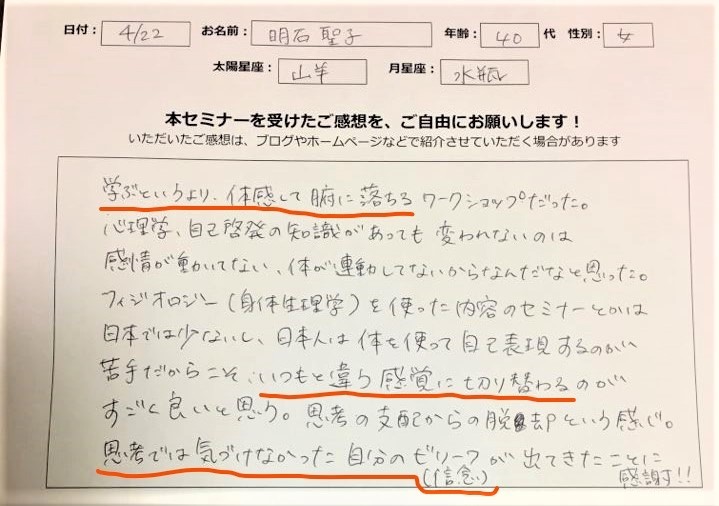 日付： 4/22 お名前： 明石 聖子 年齢： 40 代 性別： 女
太陽星座： 山羊 月星座： 水瓶
本セミナーを受けたご感想を、ご自由にお願いします！
いただいたご感想は、ブログやホームページなどで紹介させていただく場合があります
学ぶというより、体感して腑に落ちるワークショップだった。
心理学、自己啓発の知識があっても変われないのは
感情が動いてない、体が連動してないからなんだなと思った。
フィジオロジー（身体生理学）を使った内容のセミナーとかは
日本では少ないし、日本人は体を使って自己表現するのが
苦手だからこそ、いつもと違う感覚に切り替わるのが
すごく良いと思う。思考の支配からの脱却という感じ。
思考では気づけなかった自分のビリーフが出てきたことに
（信念） 感謝!!